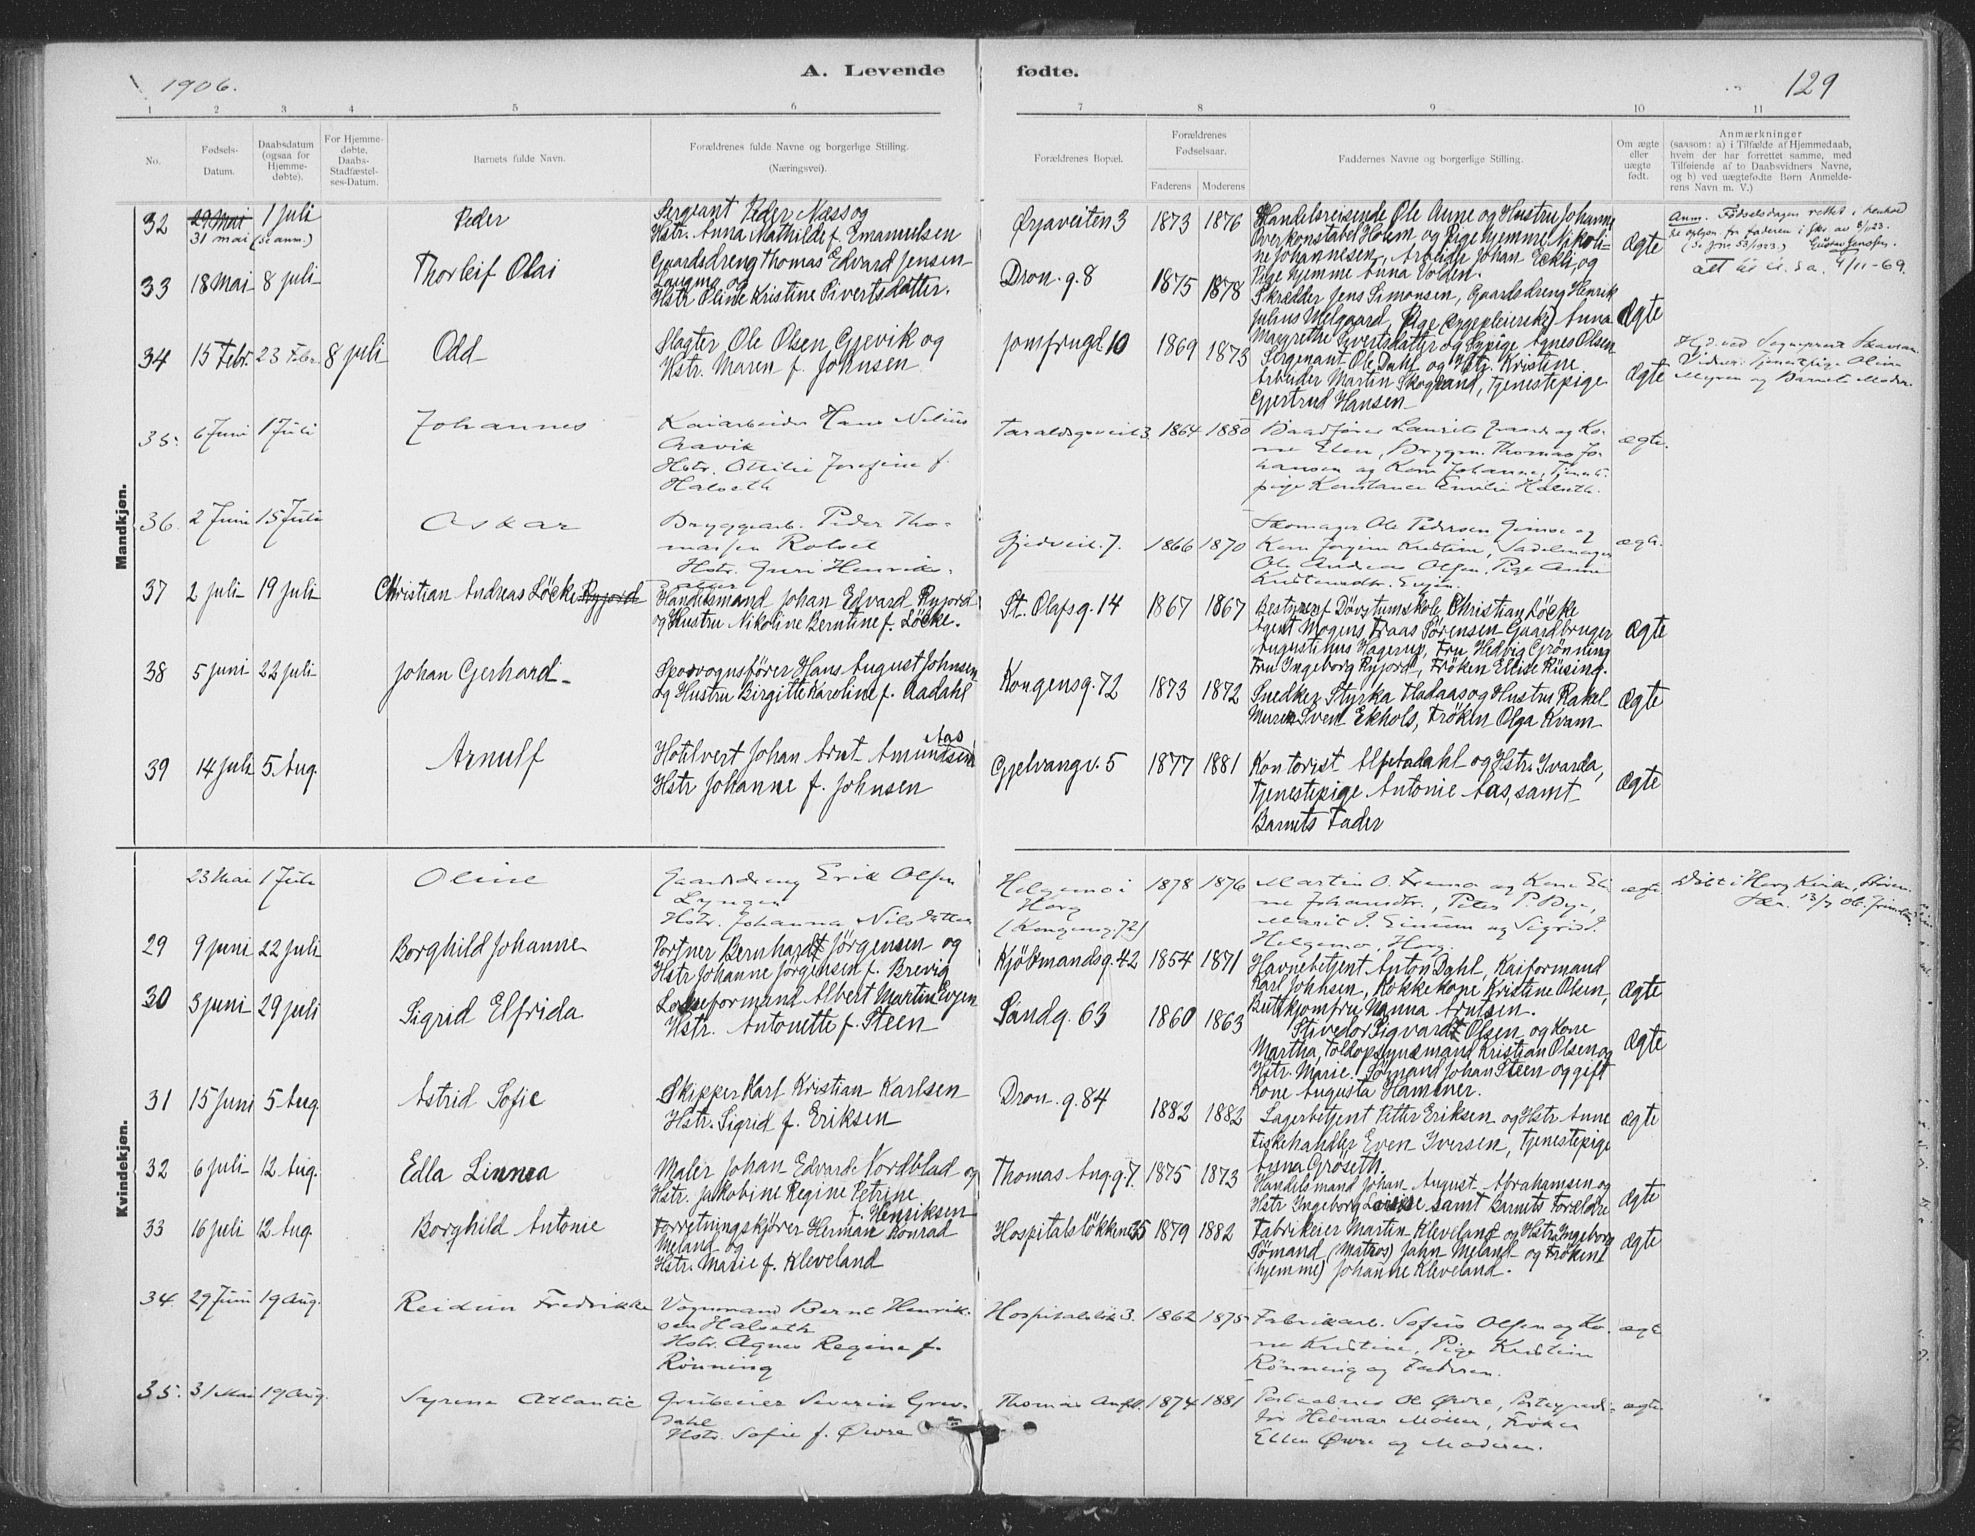 1906.
A. Levende fødte.
129
1 2 3 4 5 6 7 8 9 10 11
No.
Fødsels-
Datum.
Daabsdatum
(ogsaa for
Hjemme-
døbte).
For Hjemme-
døbte,
Daabs-
Stadfæstel-
ses-Datum.
Barnets fulde Navn.
Forældrenes fulde Navne og borgerlige Stilling.
(Næringsvei).
Forældrenes Bopæl.
Forældrenes
Fødselsaar.
Faderens
Moderens
Faddernes Navne og borgerlige Stilling.
Om ægte
eller
uægte
født.
Anmærkninger
(saasom: a) i Tilfælde af Hjemmedaab,
hvem der har forrettet samme, med
Tilføiende af to Daabsvidners Navne,
og b) ved uægtefødte Børn Anmelde-
rens Navn m. V.)
Mandkjøn.
32 29 Mai 1 juli Peder
31 mai (se anm.)
Sergeant Peder Næss og
Hstr. Anna Mathilde f. Emanuelsen
Ørjaveiten 3 1873 1876
Handelsreisende Ole Aune og Hustru Johanne
Overkonstabel Holm og Pige hjemme Nikoli-
ne Johannesen, Arbeider Johan Eckli og
Pige hjemme Anna Volden.
Ægte
Anm. Fødselsdagen rettet i henhold
33 18 Mai 8 juli Thorleif Olai
Gaardsdreng Thomas Edvard Jensen
Langmo og
Hstr Oline Kristine Sivertsdatter.
Dron.g. 8 1875 1878
Skrædder Jens Simonsen, Gaardsdreng Henrik
Julius Melgaard, Pige (sygepleierske) Anna
Margrethe Sivertsdatter og Sypige Agnes Olsen
Ægte
34 15 Febr. 23 Febr. 8 juli Odd
Slagter Ole Olsen Gjevik og
Hstr. Maren f. Johnsen
Jomfrugd 10 1869 1873
Sergenant Ole Dahl og Hstr. Kristine
Arbeider Martin Skogland, Tjenestepige
Gjertrud Hansen
Ægte
Vidner: Tjenestepige Oline
Myren og Barnets Moder.
35. 6 Juni 1 Juli Johannes
Kaiarbeider Hans Nelius
Aavik
Hstr. Ottilie Josefine f.
Halseth
Taraldsgveit 3. 1864 1880
ne Elen, Bryggm. Thomas Jo-
hansen og Kone Johanne, Tjeneste-
pige Konstance Emilie Halseth.
ægte.
36. 2 Juni 15 Juli Oskar
Bryggearb. Peder Tho-
massen Rolset
Hstr. Guri Henriks-
datter
Gjedveit. 7. 1866 1870
Skomager Ole Pedersen Gimse og
Kone Jorgine Kristine, Sadelmager
Ole Andreas Olsen, Pige Anne
ægte.
37 2 juli 19 juli Christian Andreas Löcke Ryjord
Handelsmand Johan Edvard Ryjord
og Hustru Nikoline Berntine f. Löcke.
St. Olafsg. 14 1867 1867
Bestyrer f Døvstumskole Christian Löcke
Agent Mogens Fraas Sörensen Gaardbruger
Augustinus Hagerup, Fru Hedvig Grönning
Fru Ingeborg Ryjord, Fröken Ellise Rüsing.
Ægte
38 5 juni 22 juli Johan Gerhard
Sporvognsfører Hans August Johnsen
og Hustru Birgitte Karoline f. Aadahl
Kongensg. 72 1873 1872
Snedker Styrka Hadaas og Hustru Rakel
Murer Sven Ekhols, Fröken Olga Kvam
Ægte
39 14 juli 5 Aug. Arnulf
Aas
Hotelvert Johan Arnt Amundsen
Hstr Johanne f. Johnsen
Gjelvangv. 5 1877 1881
Kontorist Alf Aadahl og Hstr. Ivarda,
Tjenestepige Antonie Aas, samt
Barnets Fader
Ægte
Kvindekjøn.
23 Mai 1 Juli Oline
Gaardsdreng Erik Olsen
Lyngen
Hstr. Johanna Nilsdatter
Helgemo i
Horg
(Kongensg. 72)
1878 1876
Martin O. Fremo og Kone Eli-
ne Johansdtr., Peter P. Bye,
Marit J. Einum og Sigrid J.
Helgemo, Horg.
ægte
Døbt i Horg Kirke, Støren
29 9 juni 22 juli Borghild Johanne
Portner Bernhardt Jørgensen og
Hstr Johanne Jørgensen f. Brevig
Kjöbmandsg. 42 1854 1871
Havnebetjent Anton Dahl, Kaiformand
Karl Johnsen, Kokkekone Kristine Olsen,
Butikjomfru Nanna Arntsen.
Ægte
30 3 juni 29 juli Sigrid Elfrida
Losseformand Albert Martin Evjen
Hstr. Antonette f. Steen
Sandg. 63 1860 1863
Stivedor Sigvardt Olsen og Kone
Martha, Toldopsynsmand Kristian Olsen og
Hstr. Marie. Sømand Johan Steen og gift
Kone Augusta Hammer.
Ægte
31 15 juni 5 Aug. Astrid Sofie
Skipper Karl Kristian Karlsen
Hstr. Sigrid f. Eriksen
Dron.g. 84 1882 1882
Lagerbetjent Petter Eriksen og Hstr Anne
Fiskehandler Even Iversen, Tjenestepige
Anna Gröseth.
Ægte
32 6 juli 12 Aug. Edla Linnea
Maler Johan Edvard Nordblad og
Hstr. Jakobine Regine Petrine
f. Henriksen
Thomas Ang g. 7. 1875 1873
Handelsmand Johan August Abrahamsen og
Hstr Ingeborg Lovise samt Barnets Forældre
Ægte
33 16 juli 12 Aug. Borghild Antonie
Forretningskjører Herman Konrad
Meland og
Hstr. Marie f. Kleveland
Hospitalslökken 35 1879 1882
Fabrikeier Martin Kleveland og Hstr Ingeborg
Sømand (Matros) Jahn Meland og Frökene
(hjemme) Johanne Kleveland.
Ægte
34. 29 Juni 19 Aug. Reidun Fredrikke
Vognmand Bernt Henrik-
sen Halseth
Hstr. Agnes Regine f.
Rönning
Hospitalslök 3. 1862 1875
Fabrikarb. Sofus Olsen og Ko-
ne Kristine, Pige Kristine
Rönning og Faderen.
ægte
35. 31 Mai 19 Aug. Syrena Atlantic
Grubeeier Severin Grøv-
dahl
Hstr. Sofie f. Øvre
1874 1881
Ellen Øvre og Moderen.
ægte